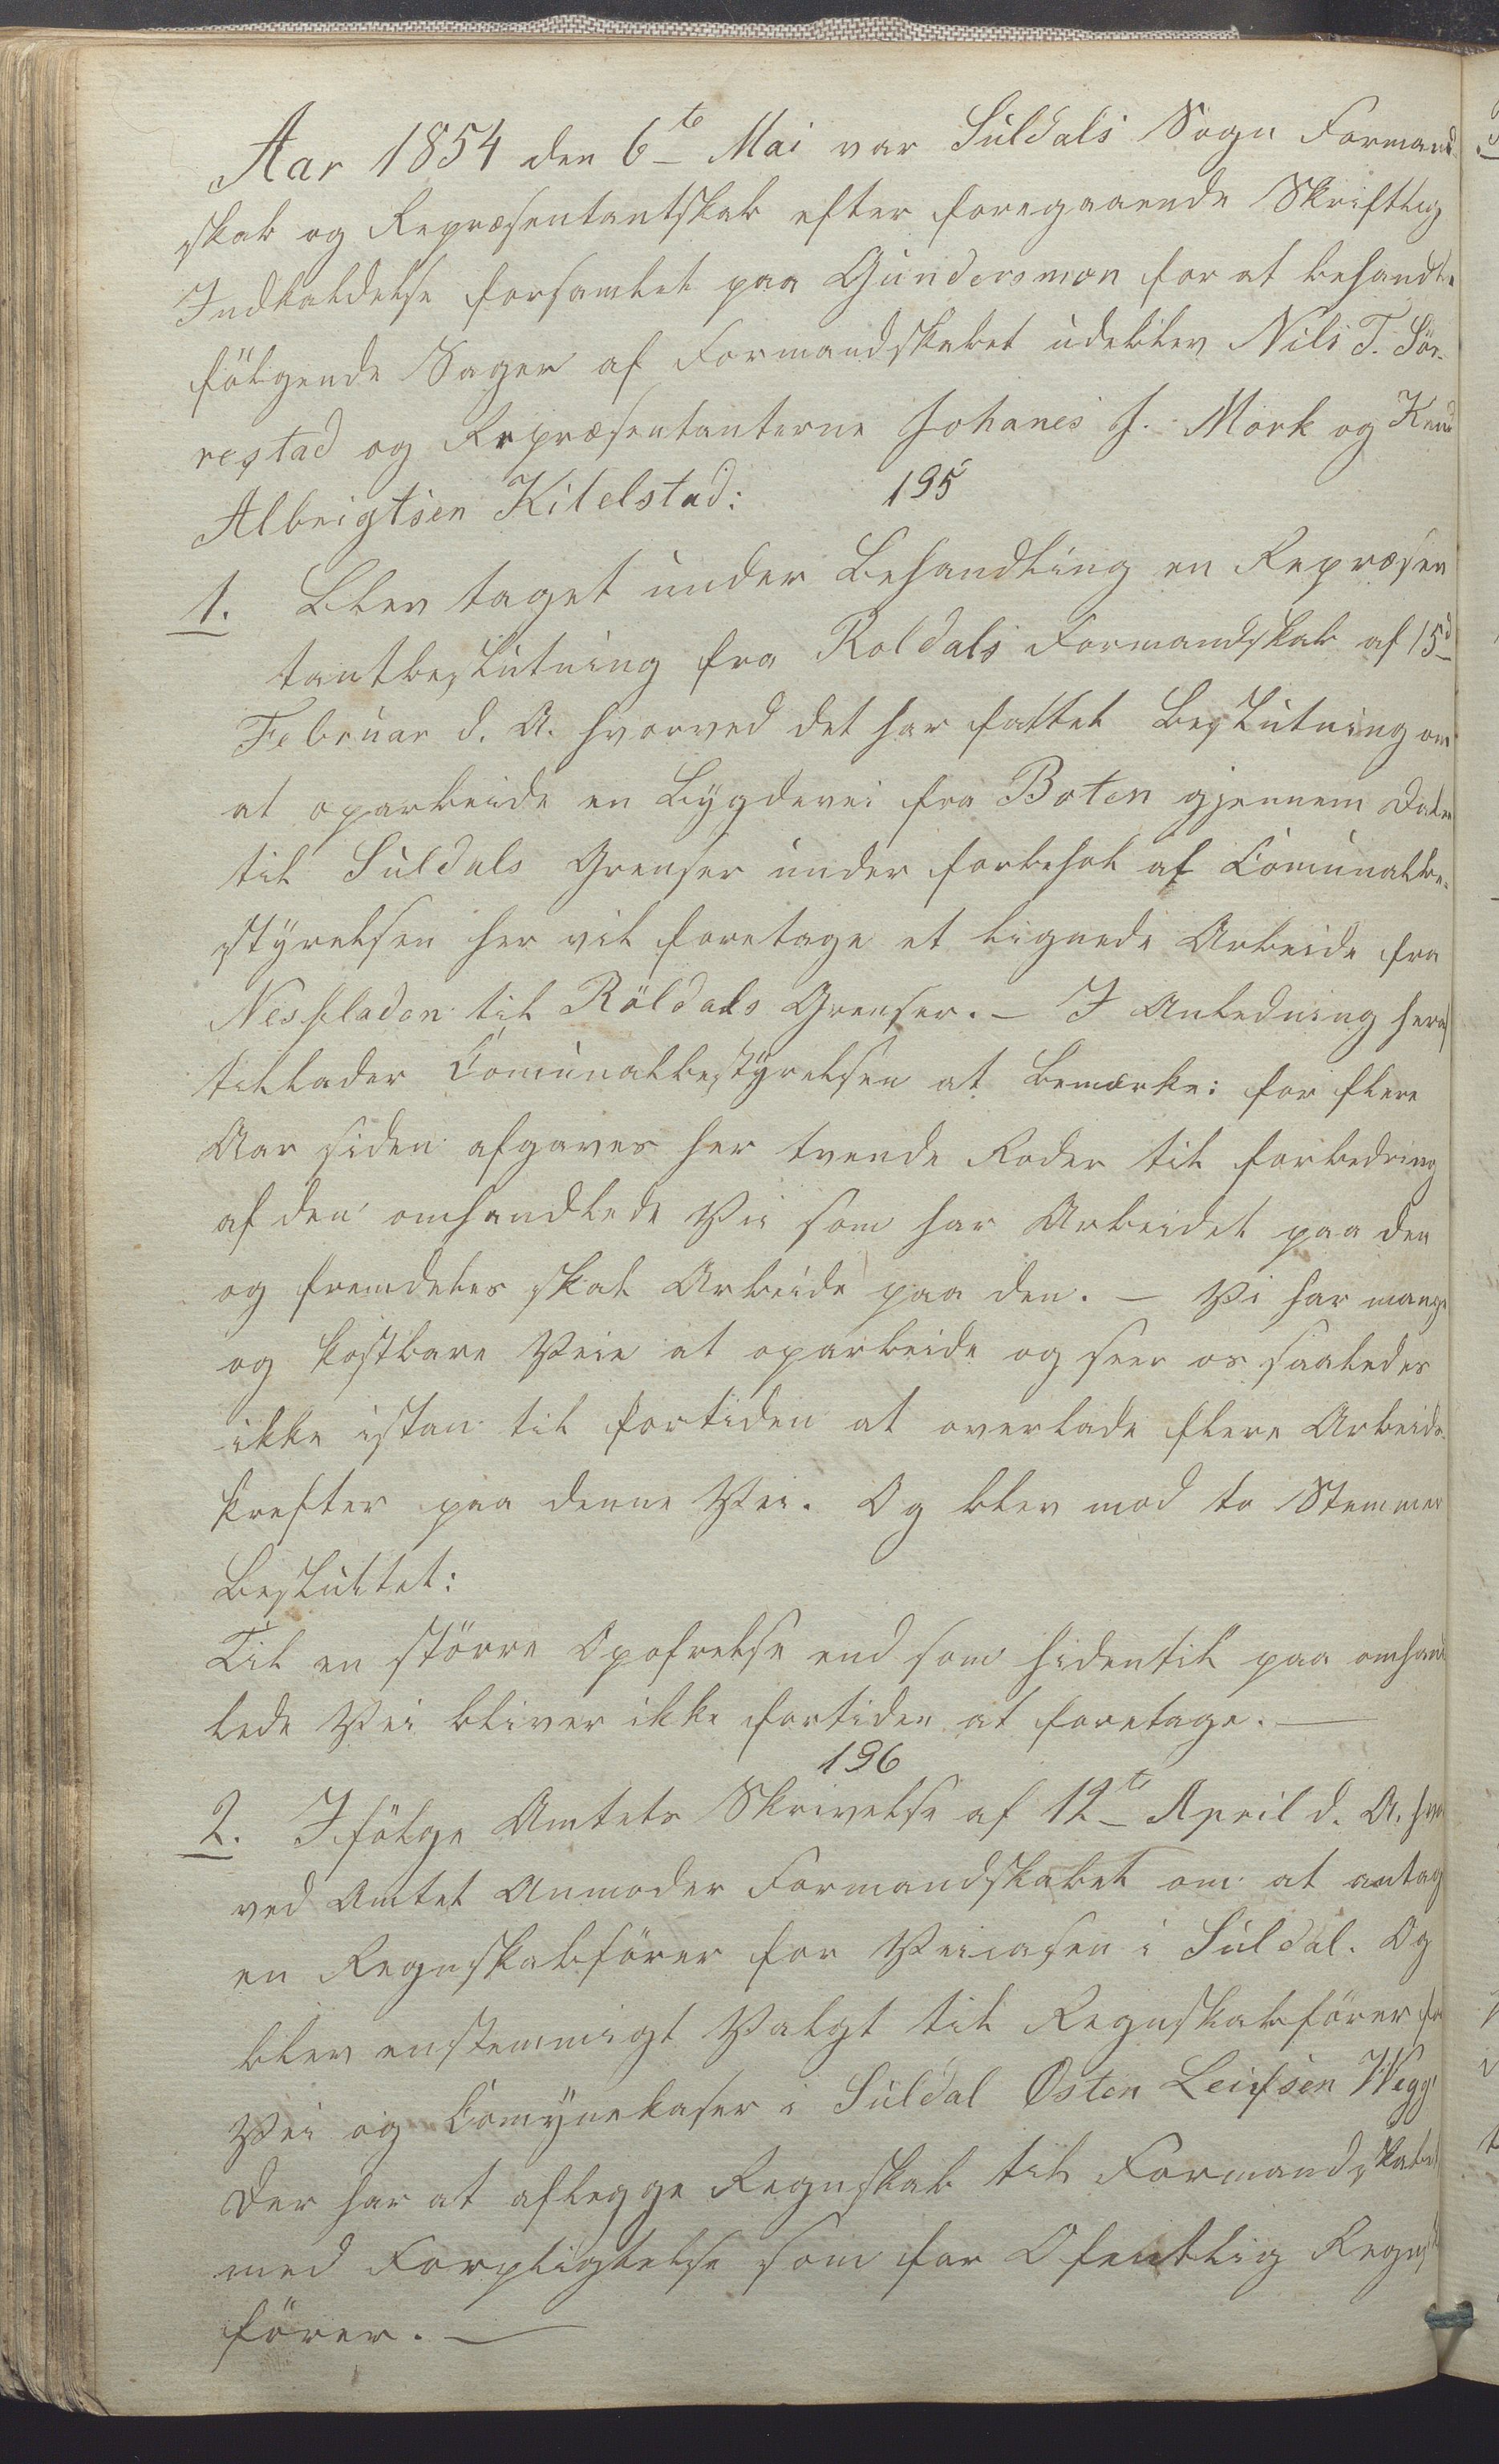 Aar 1854 den 6te Mai var Suldals Sogn Formand
skab og Repræsentantskab efter foregaaende Skriftlig
Indkaldelse forsamlet paa Gundersmoen for at behandle
fölgende Sager af Formandskabet udeblev Nils T. Sör-
restad og Repræsentanterne Johanes J. Mork og Knud
Albrigtsen Kilelstad:
195
1. Blev taget under Behandling en Repræsen
tantbeslutning fra Roldals Formandskab af 15d
Februar d. A. hvorved det har fattet Beslutning om
at oparbeide en Bygdevei fra Boten gjennem Dalen
til Suldals Grenser under forbehol af Comunalbe-
styrelsen her vil foretage et lignede Arbeide fra
Nesfladen til Röldals Grenser. - I Anledning heraf
tillader Comunalbestyrelsen at Bemærke: for flere
Aar siden afgaves her tvende Roder til forbedring
af den omhandlede Vei som har Arbeidet paa den
og fremdeles skal Arbeide paa den. - Vi har mange
og kostbare Veie at oparbeide og seer os saaledes
ikke istan til fortiden at overlade flere Arbeids-
krefter paa denne Vei. Og blev mod to Stemmer
Besluttet:
Til en större Opofrelse end som hidentil paa omhand
lede Vei bliver ikke fortiden at foretage. —
196
2. Ifölge Amtets Skrivelse af 12te April d. A. hvor
ved Amtet Anmoder Formandskabet om at antag
en Regnskabsförer for Veicasen i Suldal. Og
blev enstemmigt Valgt til Regnskabsförer for
Vei og Comynekaser i Suldal Osten Leifsen Wegge
der har at aflegge Regnskab til Formandskabet
med Forpligtelse som for Ofentlig Regnsk
förer. —